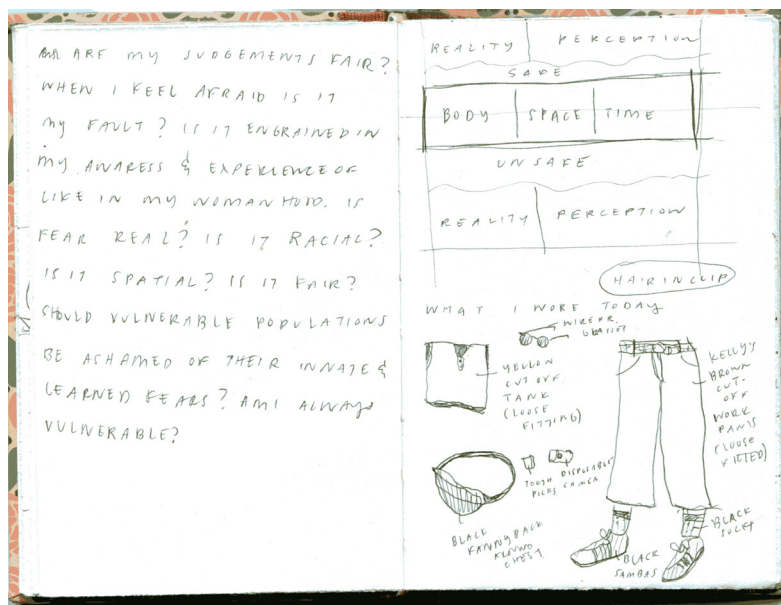 ARE MY JUDGEMENTS FAIR?
WHEN I FEEL AFRAID IS IT
MY FAULT? IS IT ENGRAINED IN
MY AWARESS & EXPERIENCE OF
LIKE IN MY WOMANHOOD. IS
FEAR REAL? IS IT RACIAL?
IS IT SPATIAL? IS IT FAIR?
SHOULD VULNERABLE POPULATIONS
BE ASHAMED OF THEIR INNATE &
LEARNED FEARS? AM I ALWAYS
VULNERABLE?
REALITY PERCEPTION
SAFE
BODY SPACE TIME
UNSAFE
REALITY PERCEPTION
HAIR IN CLIP
WHAT I WORE TODAY
WIREFR.
GLASSES
YELLOW
CUT OFF
TANK
(LOOSE
FITTING)
KELLY'S
BROWN
CUT-
OFF
WORK
PANTS
(LOOSE
FITTED)
TOOTH
PICKS
DISPOSABLE
CAMERA
BLACK
FANNYPACK
AROUND
CHEST
BLACK
SOCKS
BLACK
SAMBAS